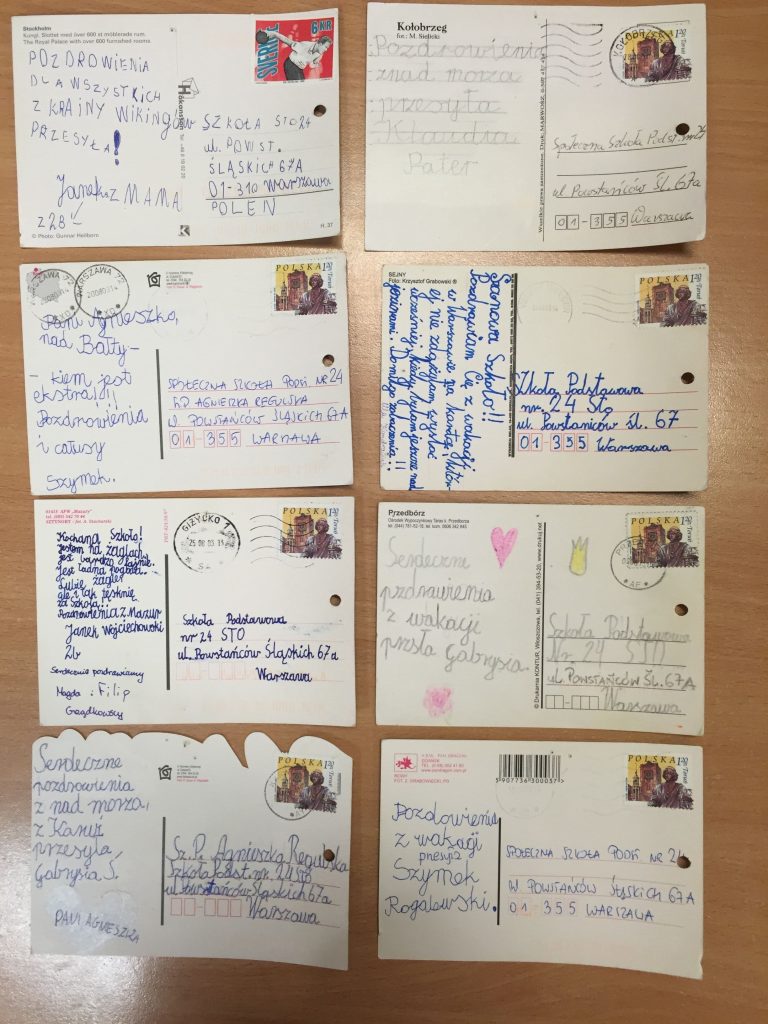 Stockholm
Kungl. Slottet med över 600 st möblerade rum.
The Royal Palace with over 600 furnished rooms.
POZDROWIENIA
DLA WSZYSTKICH
Z KRAINY WIKINGÓW
PRZESYŁA!
Janek z MAMĄ
z 2B
© Photo: Gunnar Heilborn
SVERIGE
6 KR
SZKOŁA STO 24
ul. POWST.
ŚLĄSKICH 67A
01-310 Warszawa
POLEN
H. 37
Kołobrzeg
fot.: M. Sielicki
Pozdrowienia
znad morza
przesyła
Klaudia
Pater
KOŁOBRZEG
Społeczna Szkoła Podst. nr 24
ul. Powstańców Śl. 67a
01-355 Warszawa
WARSZAWA 72
WARSZAWA 72
POLSKA 1,20
Pani Agnieszko,
nad Bałty-
-kiem jest
ekstra!!!
Pozdrowienia
i całusy
Szymek.
SPOŁECZNA SZKOŁA PODST. NR 24
AGNIESZKA REGULSKA
UL. POWSTAŃCÓW ŚLĄSKICH 67A
01-355 WARSZAWA
SEJNY
Foto: Krzysztof Grabowski ®
Szanowa Szkoło!!
Pozdrawiam Cię z wakacji
w Warszawie
Do miłego zobaczenia!!
POLSKA 1,20
Szkoła Podstawowa
nr. 24 Sto
ul. Powstańców śl. 67
01-355 Warszawa
SZTYNORT / fot. A. Stachurski
Kochana Szkoło!
Jestem na żaglach
jest bardzo fajnie.
Jest ładna pogoda.
Lubię żagle
ale i tak tęsknię
za szkołą...
Pozdrowienia z Mazur
Janek Wojciechowski
2b
Serdecznie pozdrawiamy
Magda i Filip
GIŻYCKO 1
25 08 03
POLSKA 1,20
Szkoła Podstawowa
nr 24 STO
ul. Powstańców Śląskich 67a
Warszawa
Przedbórz
Serdeczne
pozdrowienia
z wakacji
przsła Gabrysia.
POLSKA 1,20
Szkoła Podstawowa
Nr. 24 STO
ul. POWSTAŃCÓW ŚL. 67A
Warszawa
Serdeczne
pozdrowienia
z nad morza,
przesyła
Gabrysia Ś.
PANI AGNIESZKA
POLSKA 1,20
Sz. P. Agnieszka Regulska
Szkoła Podst. nr. 24 STO
ul Powstańców Śląskich 67a
Warszawa
GDAŃSK
5 907736 300037
POLSKA 1,20
Pozdowienia
z wakacji
Szymek
Rogalewski.
SPOŁECZNA SZKOŁA PODST. NR 24
W. POWSTAŃCÓW ŚLĄSKICH 67A
01 355 WARSZAWA